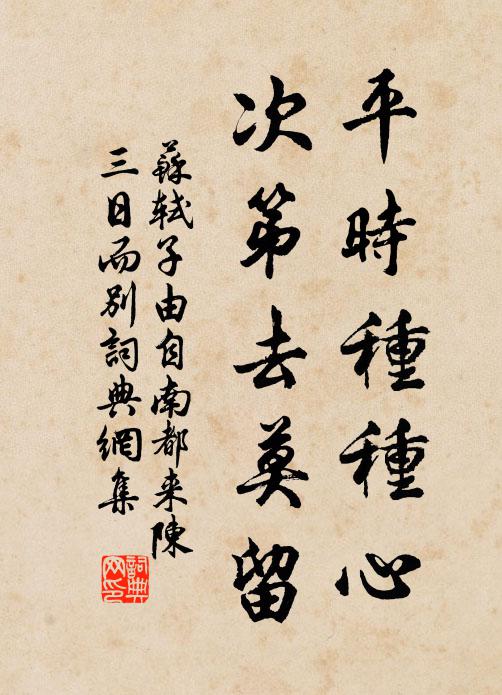 平時種種心
次第去莫留
蘇軾子由自南都来陳
三日而別詞典網集
詞典
网印